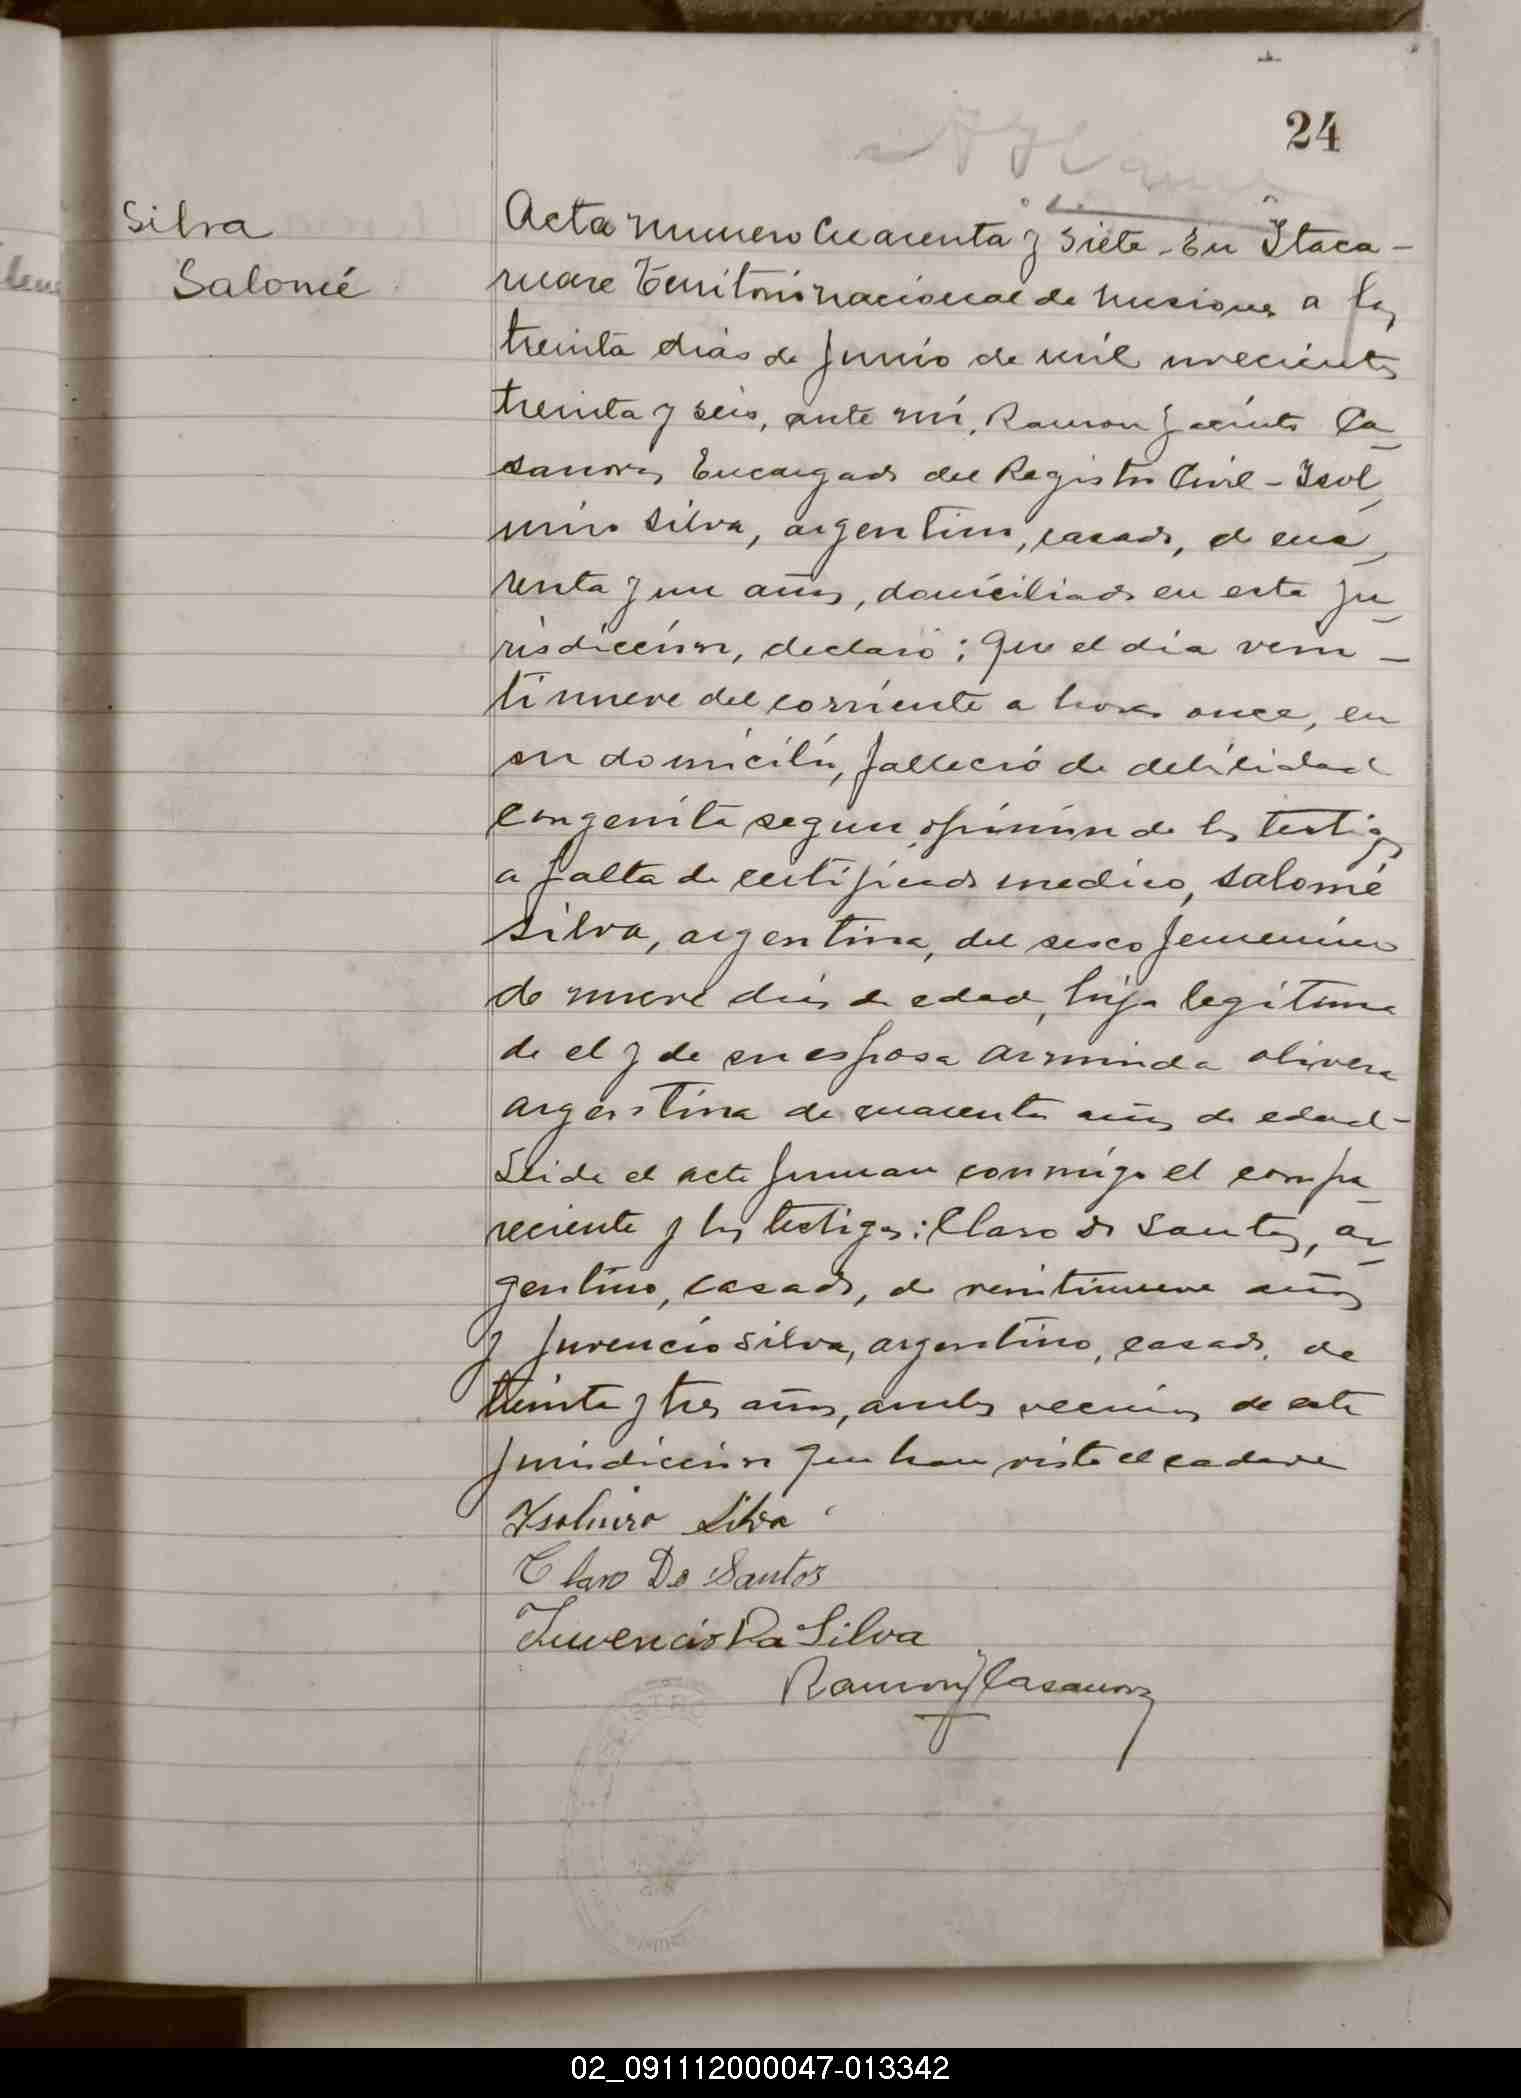 24
Silva
Salomé
Acta numero Cuarenta y siete - En Itaca-
ruare Territorio nacional de Misiones a los
treinta dias de Junio de mil novecientos
treinta y seis, ante mi, Ramon Jacinto Ca-
sanova Encargado del Registro Civil - Isol-
miro Silva, argentino, casado, de cua-
renta y un años, domiciliado en esta ju-
risdiccion, declaró: Que el dia vein-
tinueve del corriente a horas once, en
su domicilio, falleció de debilidad
congenita segun opinion de los testigos
a falta de certificado medico, Salomé
Silva, argentina, del sexo femenino
de nueve dias de edad, hija legitima
de el y de su esposa Arminda Olivera
argentina de cuarenta años de edad-
Leida el acta firman conmigo el compa-
reciente y los testigos: Claro do Santos, ar-
gentino, casado, de veintinueve años
y Juvencio Silva, argentino, casado, de
treinta y tres años, ambos vecinos de esta
jurisdiccion que han visto el cadaver
Isolmiro Silva
Claro Do Santos
Juvencio Da Silva
Ramon J Casanova
02_091112000047-013342